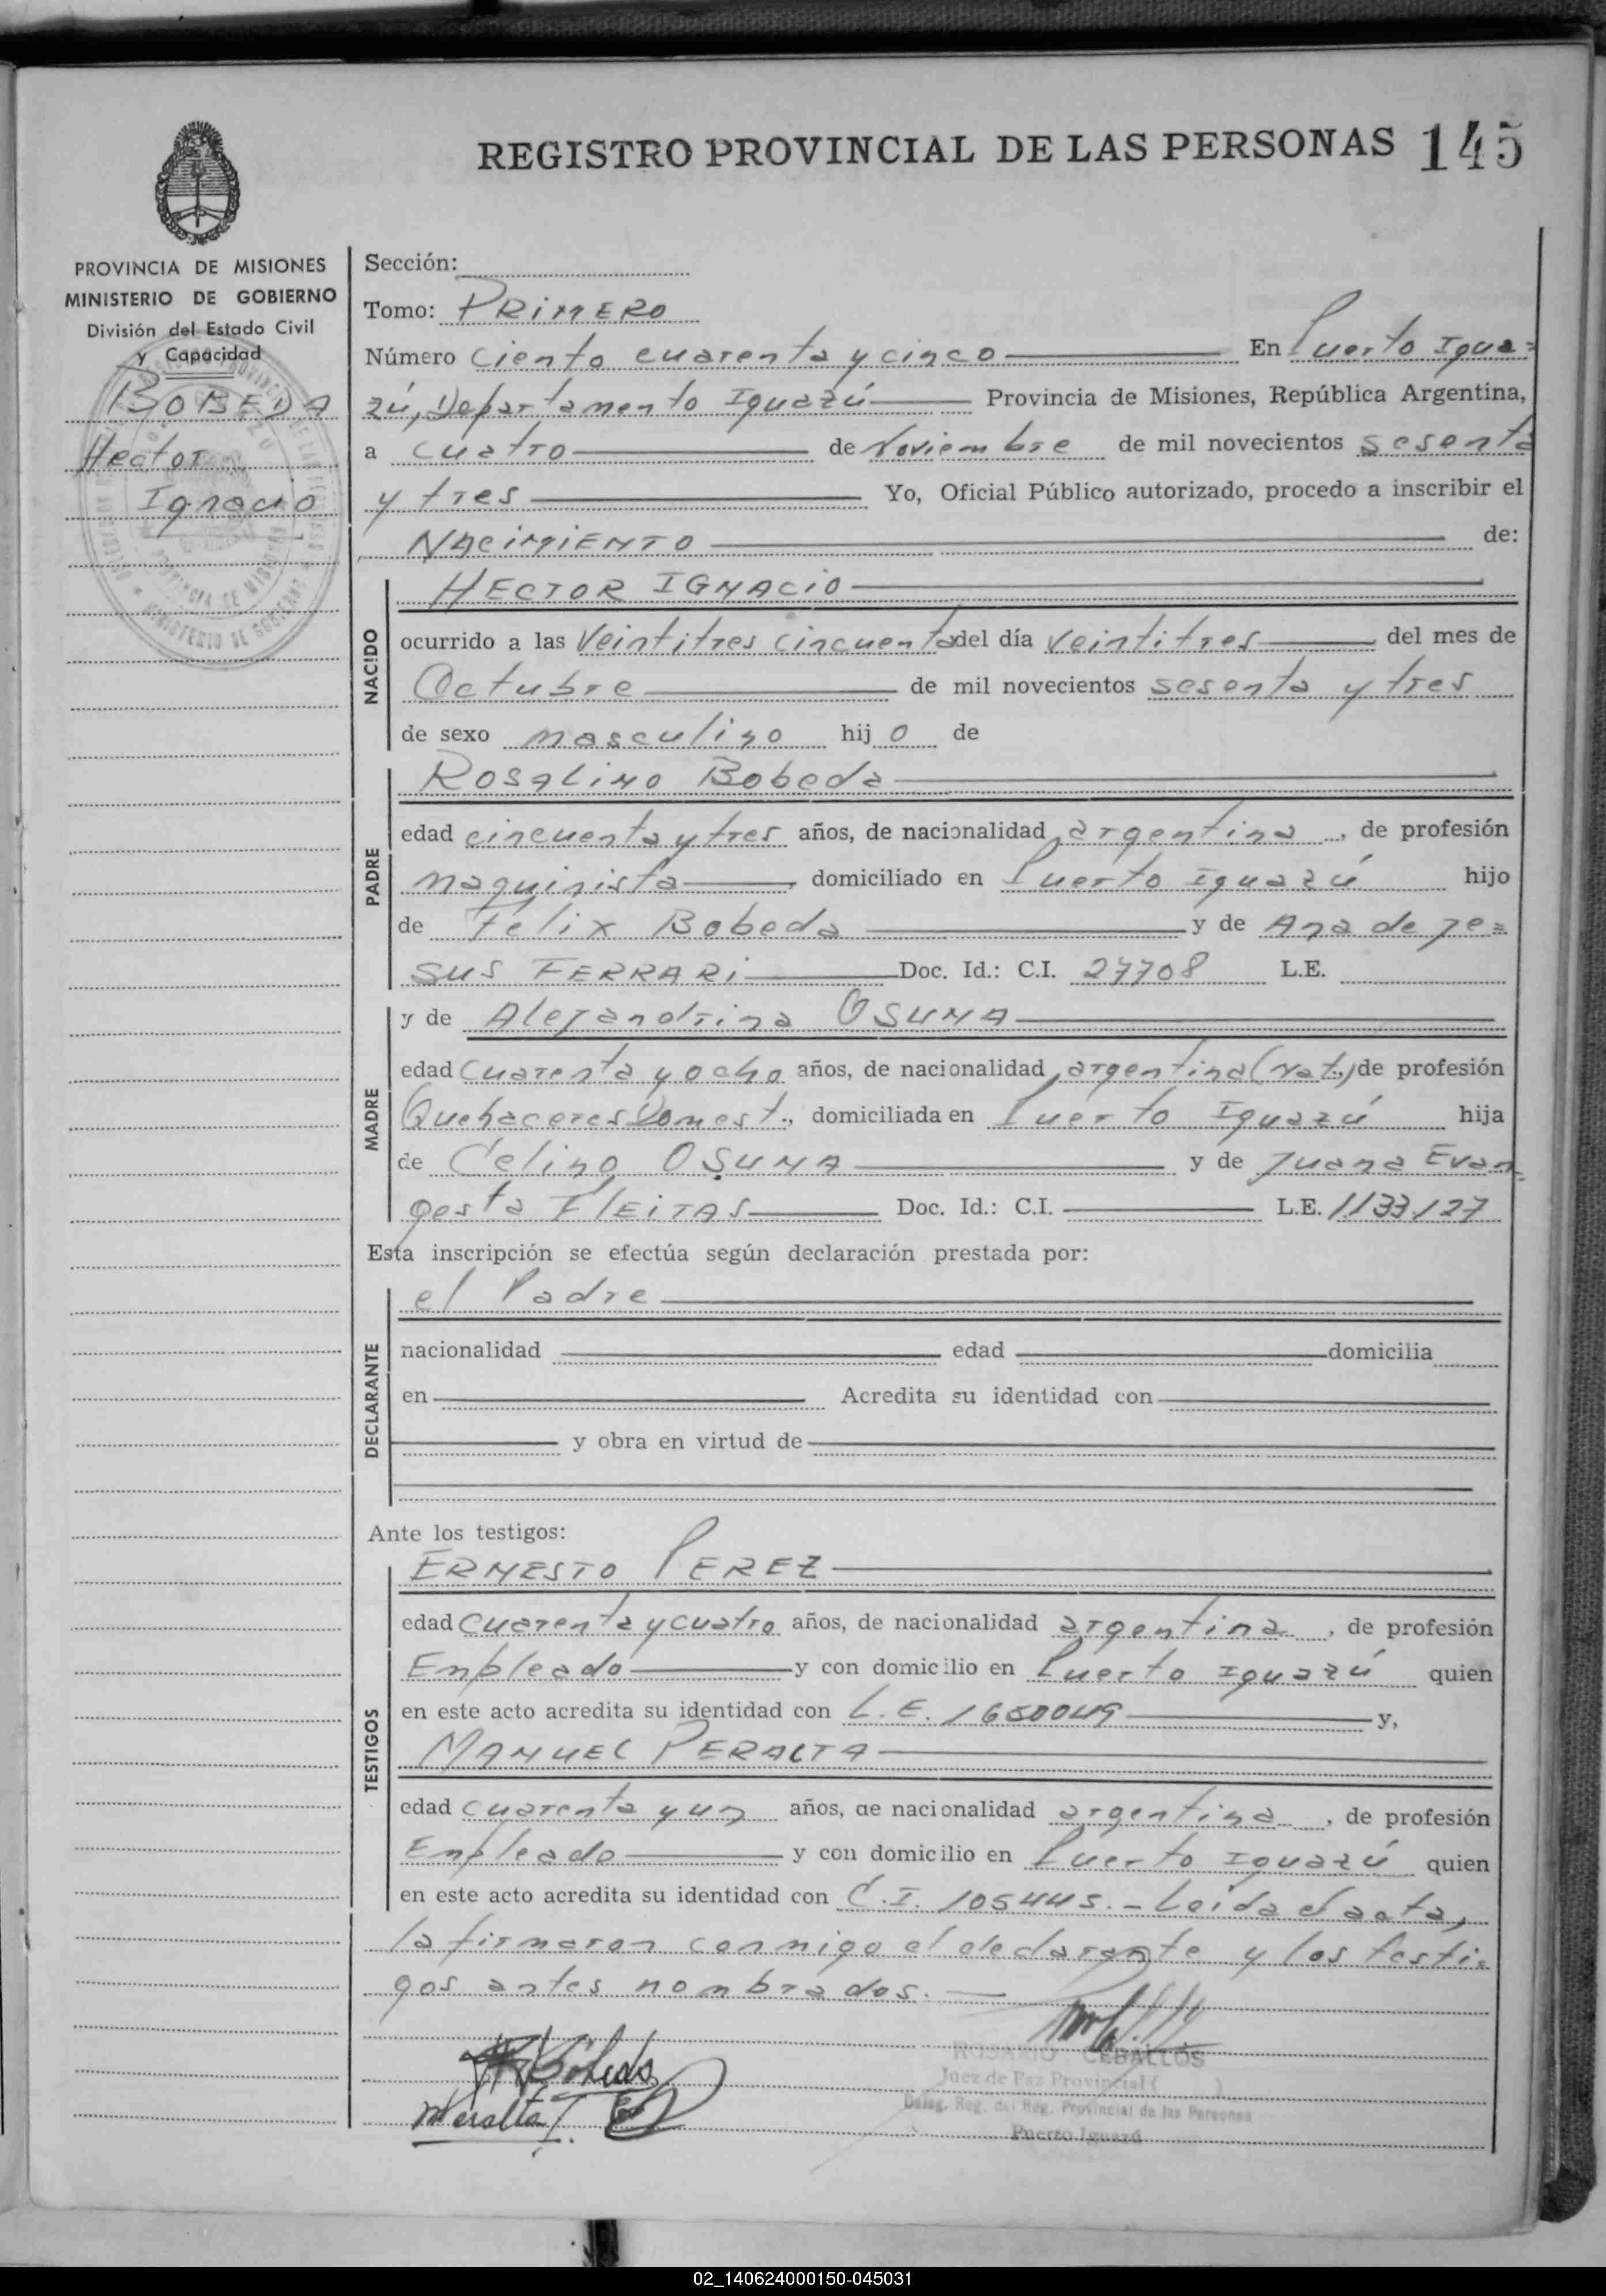 REGISTRO PROVINCIAL DE LAS PERSONAS 145
PROVINCIA DE MISIONES
MINISTERIO DE GOBIERNO
División del Estado Civil
y Capacidad
BOBEDA
Hector
Ignacio
Sección:
Tomo: PRIMERO
Número Ciento cuarenta y cinco En Puerto Igua=
zú, Departamento Iguazú Provincia de Misiones, República Argentina,
a cuatro de Noviembre de mil novecientos sesenta
y tres Yo, Oficial Público autorizado, procedo a inscribir el
NACIMIENTO de:
NACIDO
HECTOR IGNACIO
ocurrido a las Veintitres cincuenta del día veintitres del mes de
Octubre de mil novecientos sesenta y tres
de sexo masculino hij o de
PADRE
ROSALINO Bobeda
edad cincuenta y tres años, de nacionalidad argentina, de profesión
maquinista, domiciliado en Puerto Iguazú hijo
de Félix Bobeda y de Ana de Je=
sus FERRARI Doc. Id.: C.I. 27708 L.E.
MADRE
y de Alejandrina OSUNA
edad Cuarenta y ocho años, de nacionalidad argentina (nat.) de profesión
Quehaceres Domest., domiciliada en Puerto Iguazú hija
de Celino OSUNA y de Juana Evan
gesta FLEITAS Doc. Id.: C.I. L.E. 1133127
Esta inscripción se efectúa según declaración prestada por:
DECLARANTE
el Padre
nacionalidad edad domicilia
en Acredita su identidad con
y obra en virtud de
Ante los testigos:
TESTIGOS
ERNESTO PEREZ
edad Cuarenta y cuatro años, de nacionalidad argentina, de profesión
Empleado y con domicilio en Puerto Iguazú quien
en este acto acredita su identidad con L.E. 1650049 y,
MANUEL PERALTA
edad cuarenta y un años, de nacionalidad argentina, de profesión
Empleado y con domicilio en Puerto Iguazú quien
en este acto acredita su identidad con C.I. 105445. - Leída el acta,
la firmaron conmigo el declarante y los testi=
gos antes nombrados. -
R Bobeda
MPeralta
ROSARIO CEBALLOS
Juez de Paz Provincial
Deleg. Reg. del Reg. Provincial de las Personas
Puerto Iguazú
02_140624000150-045031